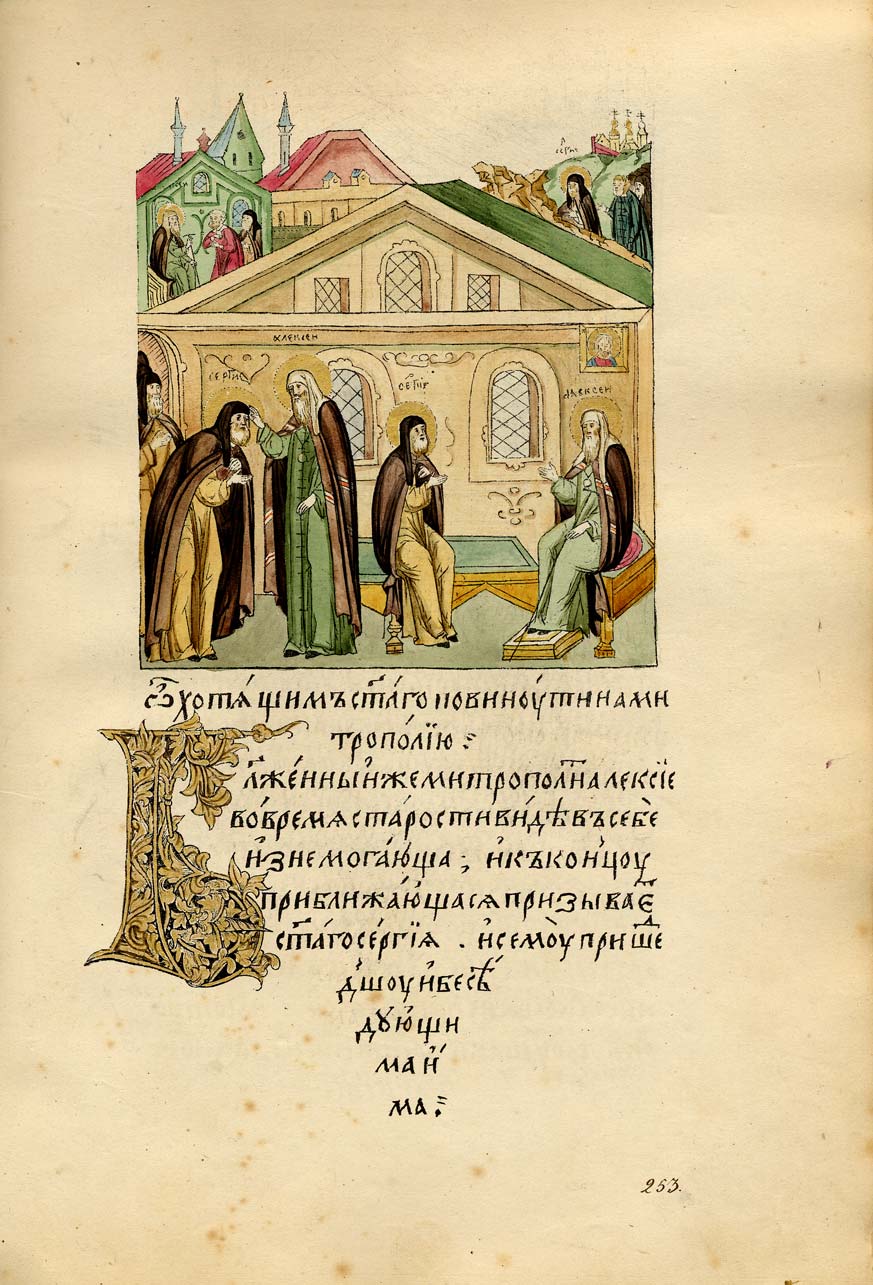 сергие
алексеи
сергие
сергіи
алексеи
Ѿ хотѧщимъ ст҃аго повиноути на ми
трополїю
Бл҃женныи же митрополи́т алексїе
во времѧ старости видѣвъ себе
изнемогающа ; и къ концоу
приближающасѧ призываеⷮ
ст҃аго сергїѧ . и семоу прише
дшоу и бесѣ
дꙋющи
ма и
ма
253.